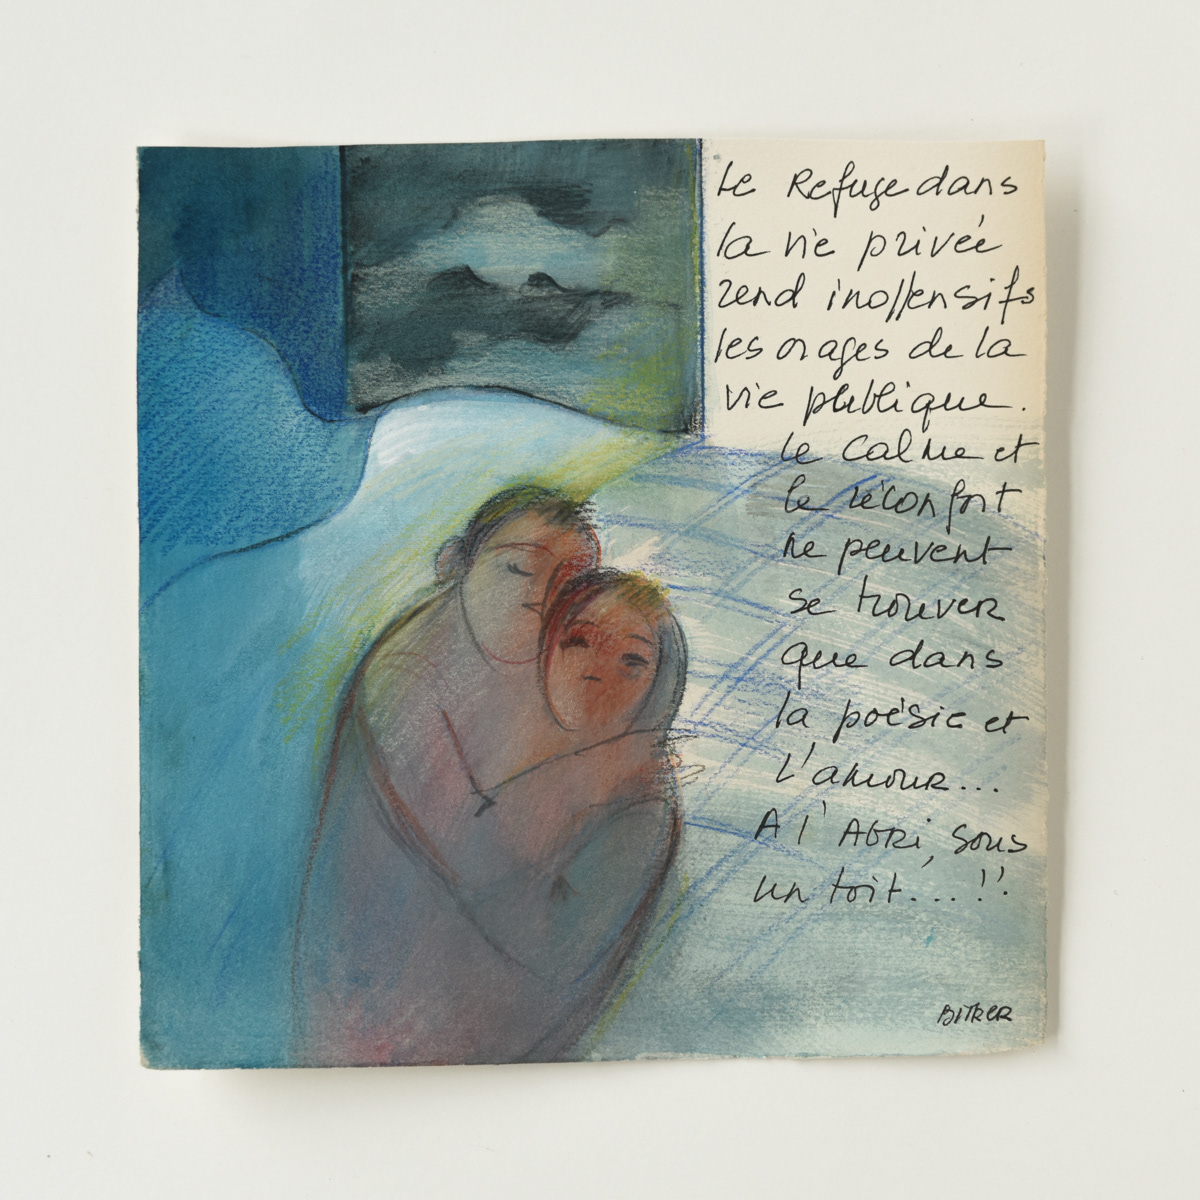 Le Refuge dans
la vie privée
rend inoffensifs
les orages de la
vie publique.
le calme et
le réconfort
ne peuvent
se trouver
que dans
la poésie et
l'amour...
A l'Abri, sous
un toit....!!
BITKER